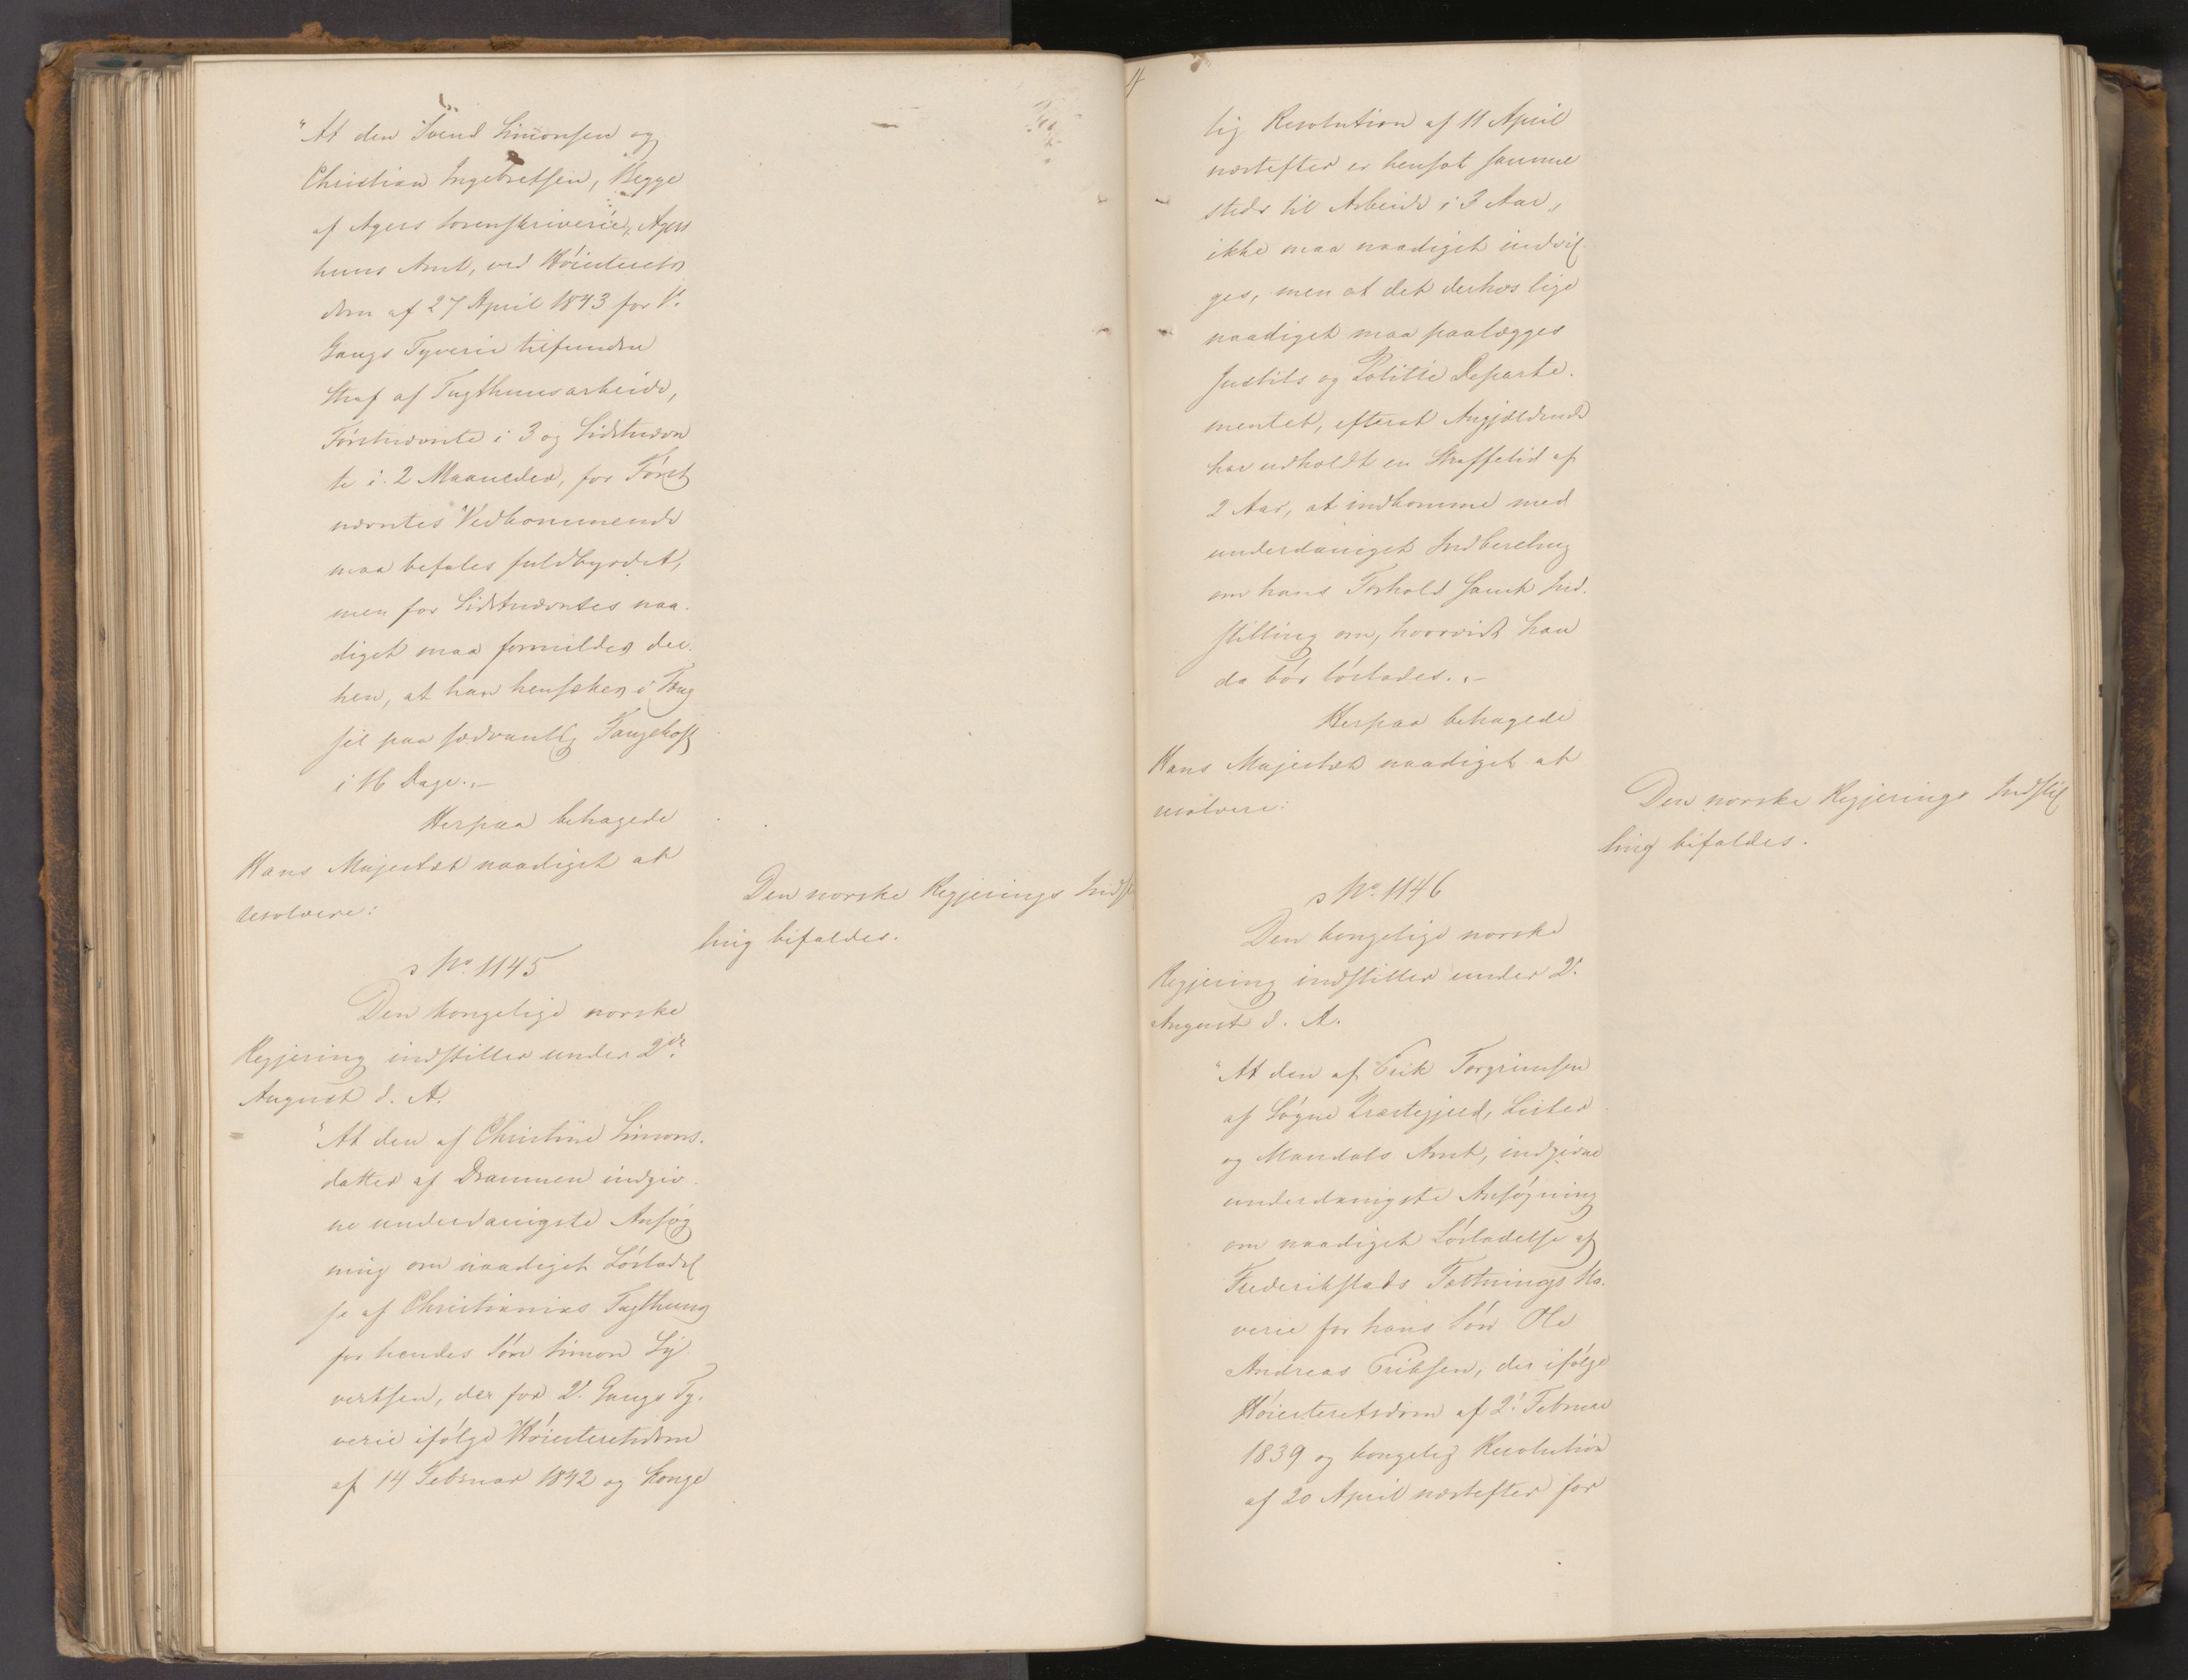 "At den Svend Simonsen og
Christian Ingebretsen, Begge
af Agers Sorenskriverie, Agers
huus Amt, ved Höiesterets
dom af 27 April 1843 for 1ste
Gangs Tyverie tilfundne
Straf af Tugthuusarbeide,
Förstnævnte i 3 og Sidstnævn
te i 2 Maaneder, for Först
nævntes Vedkommende
maa befales fuldbyrdet,
men for Sidstnævntes naa-
digst maa formildes der-
hen, at han hensættes i Fæng
sel paa sædvanlig Fangekost
i 16 Dage.-
Herpaa behagede
Hans Majestæt naadigst at
resolvere:
Den norske Regjerings Indstil
ling bifaldes.
No. 1145
Den kongelige norske
Regjering indstiller under 2de
August d. A.
"At den af Christine Simons-
datter af Drammen indgiv-
ne underdanigste Ansög
ning om naadigst Lösladel
se af Christianias Tugthuus
for hendes Sön Simon Sy-
vertsen, der for 2. Gangs Ty-
verie ifölge Höiesteretsdom
af 14 Februar 1842 og Konge
lig Resolution af 11 April
næstefter er hensat samme
steds til Arbeide i 3 Aar,
ikke maa naadigst indvil-
ges, men at det derhos lige
naadigst maa paalægges
Justits og Politie Departe-
mentet, efterat Angjældende
har udholdt en Straffetid af
2 Aar, at indkomme med
underdanigst Indberetning
om hans Forhold samt Ind-
stilling om, hvorvidt han
da bör löslades.-
Herpaa behagede
Hans Majestæt naadigst at
resolvere:
Den norske Regjerings Indstil
ling bifaldes.
No. 1146
Den kongelige norske
Regjering indstiller under 2.
August d. A.
"At den af Erik Torgrimsen
af Sögne Præstegjeld, Lister
og Mandals Amt, indgivne
underdanigste Ansögning
om naadigst Lösladelse af
Frederikstads Fæstnings Sla-
verie for hans Sön Ole
Andreas Eriksen, der ifölge
Höiesteretsdom af 2. Februar
1839 og kongelig Resolution
af 20 April næstefter for